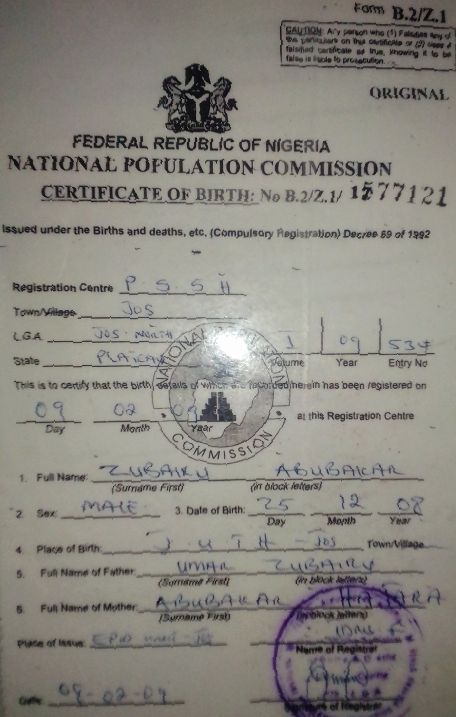 Form B.2/Z.1
CAUTION: Any person who (1) Falsifies any of
the particulars on this certificate or (2) uses a
falsified certificate as true, knowing it to be
false is liable to prosecution.
ORIGINAL
FEDERAL REPUBLIC OF NIGERIA
NATIONAL POPULATION COMMISSION
CERTIFICATE OF BIRTH: No B.2/Z.1/ 1577121
Issued under the Births and deaths, etc. (Compulsory Registration) Decree 69 of 1992
Registration Centre P S S H
Town/Village JOS
L.G.A. JOS-NORTH I 09 534
State PLATEAU Volume Year Entry No
This is to certify that the birth, details of which are recorded herein has been registered on
09 02 09 at this Registration Centre
Day Month Year
NATIONAL POPULATION COMMISSION
1. Full Name: ZUBAIRU ABUBAKAR
(Surname First) (in block letters)
2. Sex: MALE 3. Date of Birth: 25 12 08
Day Month Year
4. Place of Birth: J U T H - JOS Town/Village
5. Full Name of Father: UMAR ZUBAIRU
(Surname First) (in block letters)
6. Full Name of Mother: ABUBAKAR
(Surname First) (in block letters)
Place of Issue:
Name of Registrar
Date: 09-02-09
Signature of Registrar